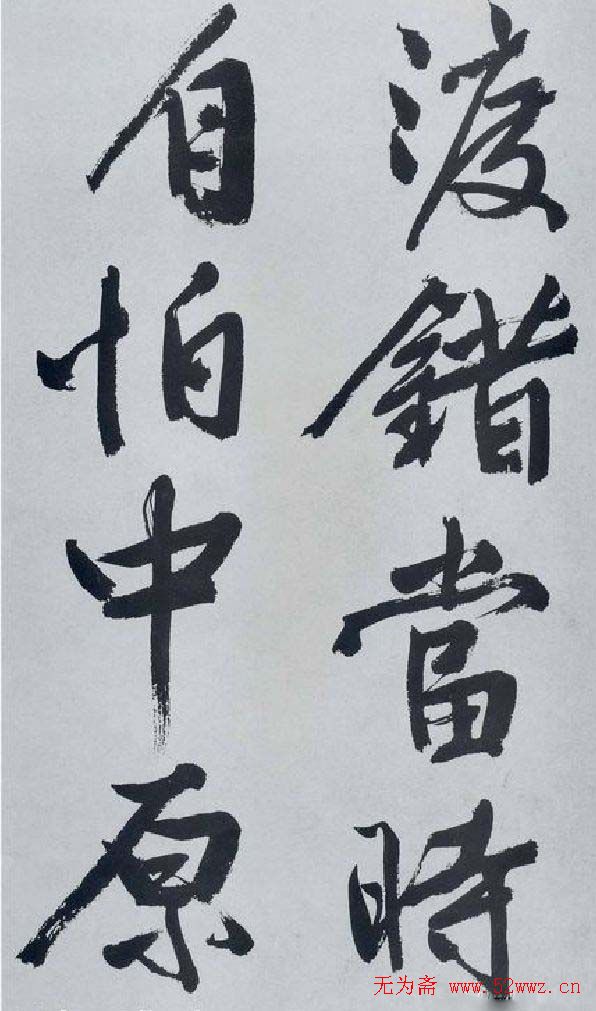 渡錯當時
自怕中原
无为斋 www.52wwz.cn